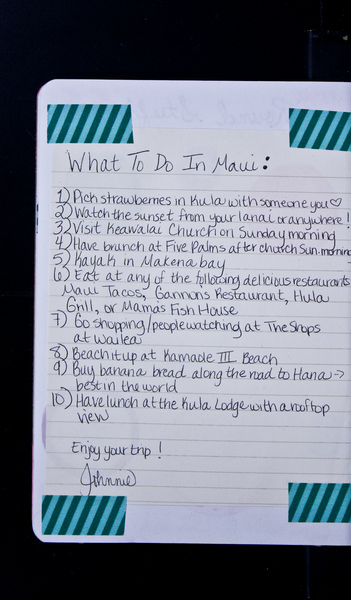 What To Do In Maui:
1) Pick strawberries in Kula with someone you ♡
2) Watch the sunset from your lanai or anywhere!
3) Visit Keawalai Church on Sunday morning
4) Have brunch at Five Palms after church Sun. morning
5) Kayak in Makena bay
6) Eat at any of the following delicious restaurants
Maui Tacos, Gannons Restaurant, Hula
Grill, or Mamas Fish House
7) Go shopping/people watching at The Shops
at Wailea
8) Beach it up at Kamaole III Beach
9) Buy banana bread along the road to Hana →
best in the world
10) Have lunch at the Kula Lodge with a rooftop
view
Enjoy your trip!
Johnnie